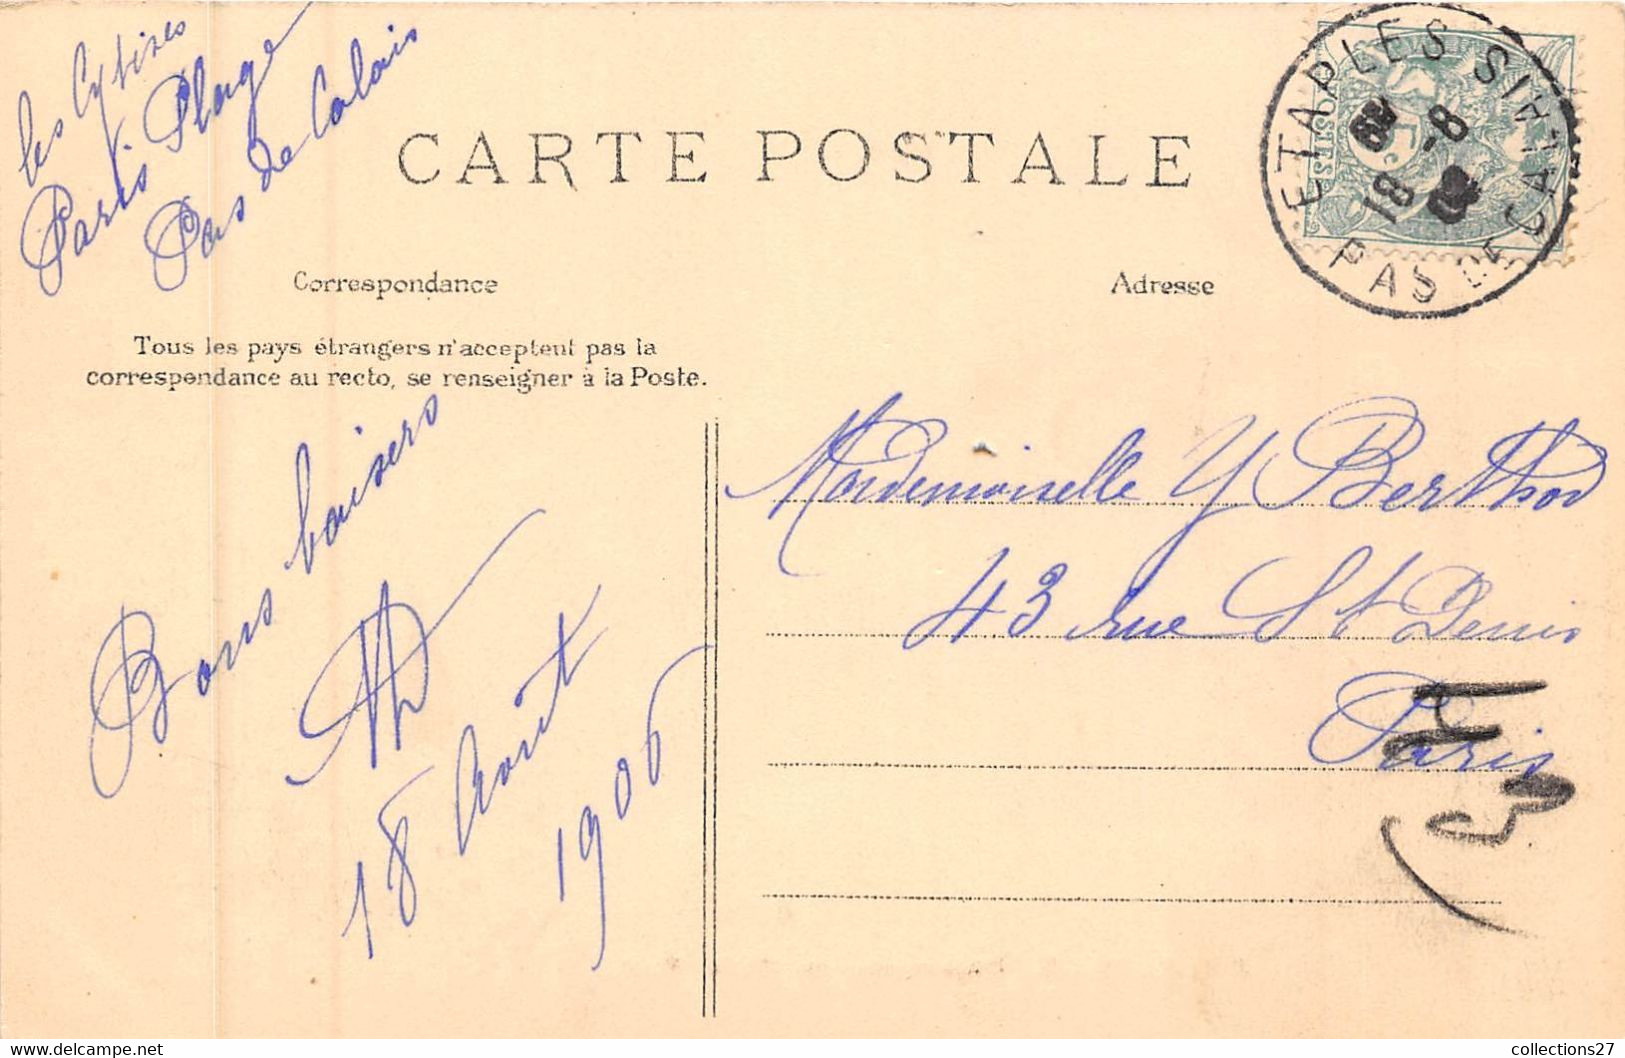 les Cytises
Paris Plage
Pas de Calais
CARTE POSTALE
ETAPLES
PAS DE CALAIS
18 -8
POSTES
5c
Correspondance
Adresse
Tous les pays étrangers n'acceptent pas la
correspondance au recto, se renseigner à la Poste.
Bons baisers
18 Août
1906
Mademoiselle Y Berthod
43 rue St Denis
Paris
collections27